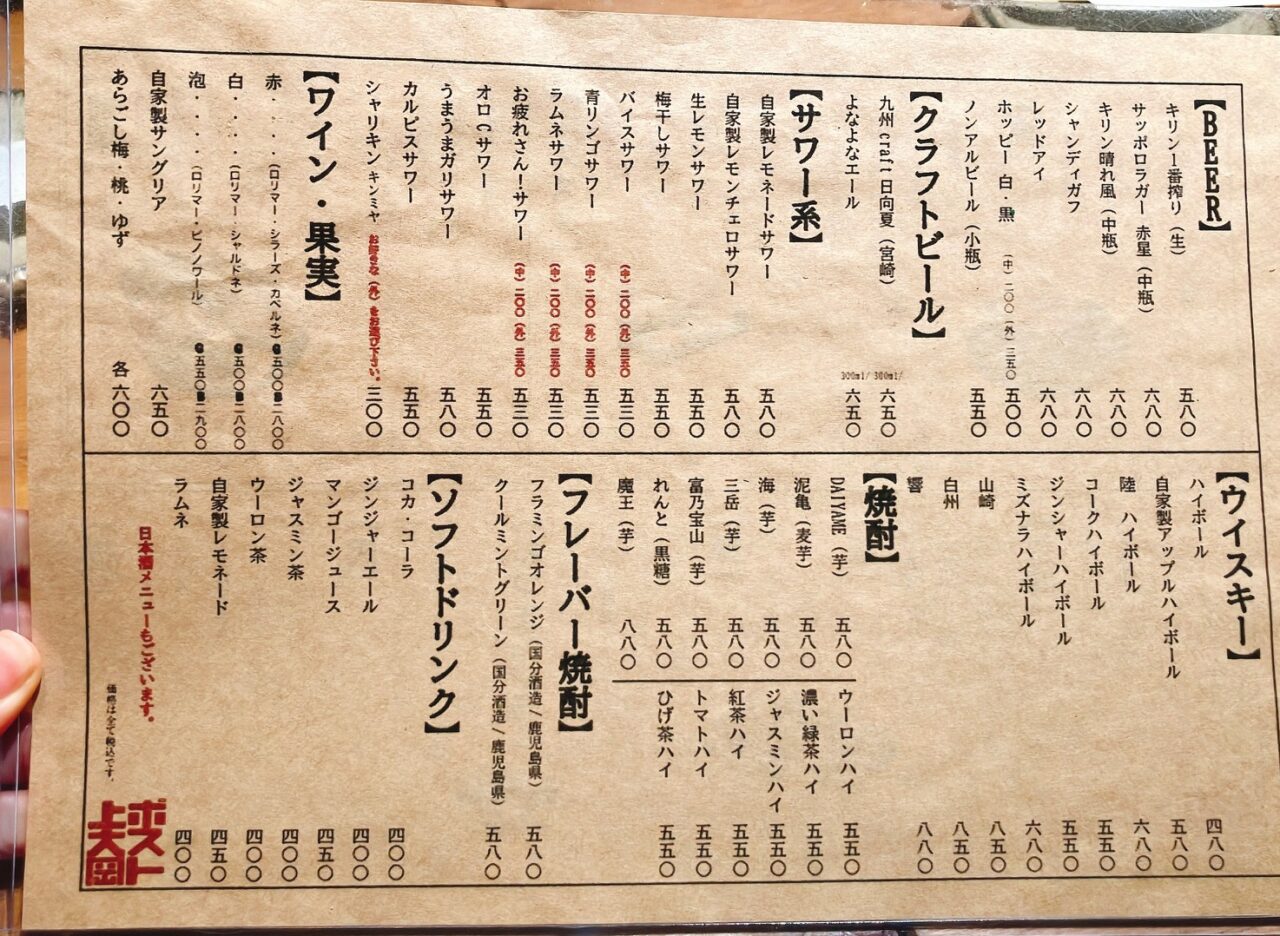 【BEER】
キリン1番搾り（生） 五八〇
サッポロラガー 赤星（中瓶） 六八〇
キリン晴れ風（中瓶） 六八〇
シャンディガフ 六八〇
レッドアイ 六八〇
ホッピー 白・黒 （中）二〇〇（外）三五〇 五〇〇
ノンアルビール（小瓶） 五五〇
【クラフトビール】
九州craft 日向夏（宮崎） 300ml/ 六五〇
よなよなエール 300ml/ 六五〇
【サワー系】
自家製レモネードサワー 五八〇
自家製レモンチェロサワー 五八〇
生レモンサワー 五五〇
梅干しサワー 五五〇
バイスサワー （中）二〇〇（外）三五〇 五三〇
青リンゴサワー （中）二〇〇（外）三五〇 五三〇
ラムネサワー （中）二〇〇（外）三五〇 五三〇
お疲れさん！サワー （中）二〇〇（外）三五〇 五三〇
オロCサワー 五五〇
うまうまガリサワー 五八〇
カルピスサワー 五五〇
シャリキン キンミヤ お好きな（外）をお選び下さい。 三〇〇
【ワイン・果実】
赤・・・・（ロリマー・シラーズ・カベルネ） G五〇〇 B二八〇〇
白・・・・（ロリマー・シャルドネ） G五〇〇 B二八〇〇
泡・・・・（ロリマー・ピノノワール） G五五〇 B二九〇〇
自家製サングリア 六五〇
あらごし梅・桃・ゆず 各 六〇〇
【ウイスキー】
ハイボール 四八〇
自家製アップルハイボール 五八〇
陸 ハイボール 六八〇
コークハイボール 五五〇
ジンジャーハイボール 五五〇
ミズナラハイボール 六八〇
山崎 八五〇
白州 八五〇
響 八八〇
【焼酎】
DAIYAME（芋） 五八〇
泥亀（麦芋） 五八〇
海（芋） 五八〇
三岳（芋） 五八〇
富乃宝山（芋） 五八〇
れんと（黒糖） 五八〇
魔王（芋） 八八〇
ウーロンハイ 五五〇
濃い緑茶ハイ 五五〇
ジャスミンハイ 五五〇
紅茶ハイ 五五〇
トマトハイ 五五〇
ひげ茶ハイ 五五〇
【フレーバー焼酎】
フラミンゴオレンジ（国分酒造/鹿児島県） 五八〇
クールミントグリーン（国分酒造/鹿児島県） 五八〇
【ソフトドリンク】
コカ・コーラ 四〇〇
ジンジャーエール 四〇〇
マンゴージュース 四五〇
ジャスミン茶 四〇〇
ウーロン茶 四〇〇
自家製レモネード 四五〇
ラムネ 四〇〇
日本酒メニューもございます。
価格は全て税込です。
ポスト
上大岡